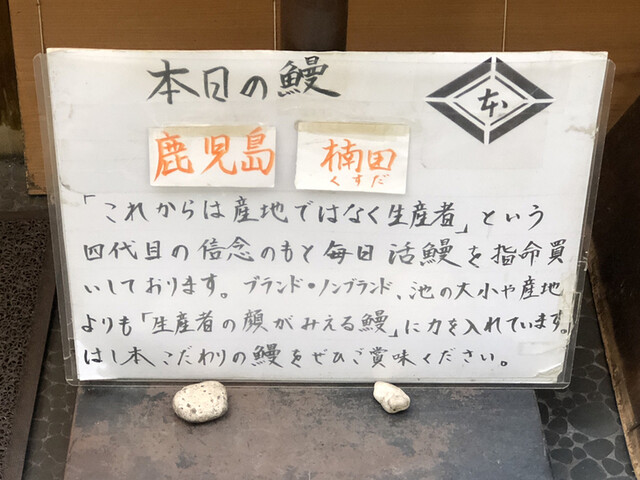 本日の鰻
本
鹿児島 楠田
くすだ
「これからは産地ではなく生産者」という
四代目の信念のもと毎日活鰻を指命買
いしております。ブランド・ノンブランド、池の大小や産地
よりも「生産者の顔がみえる鰻」に力を入れています。
はし本こだわりの鰻をぜひご賞味ください。